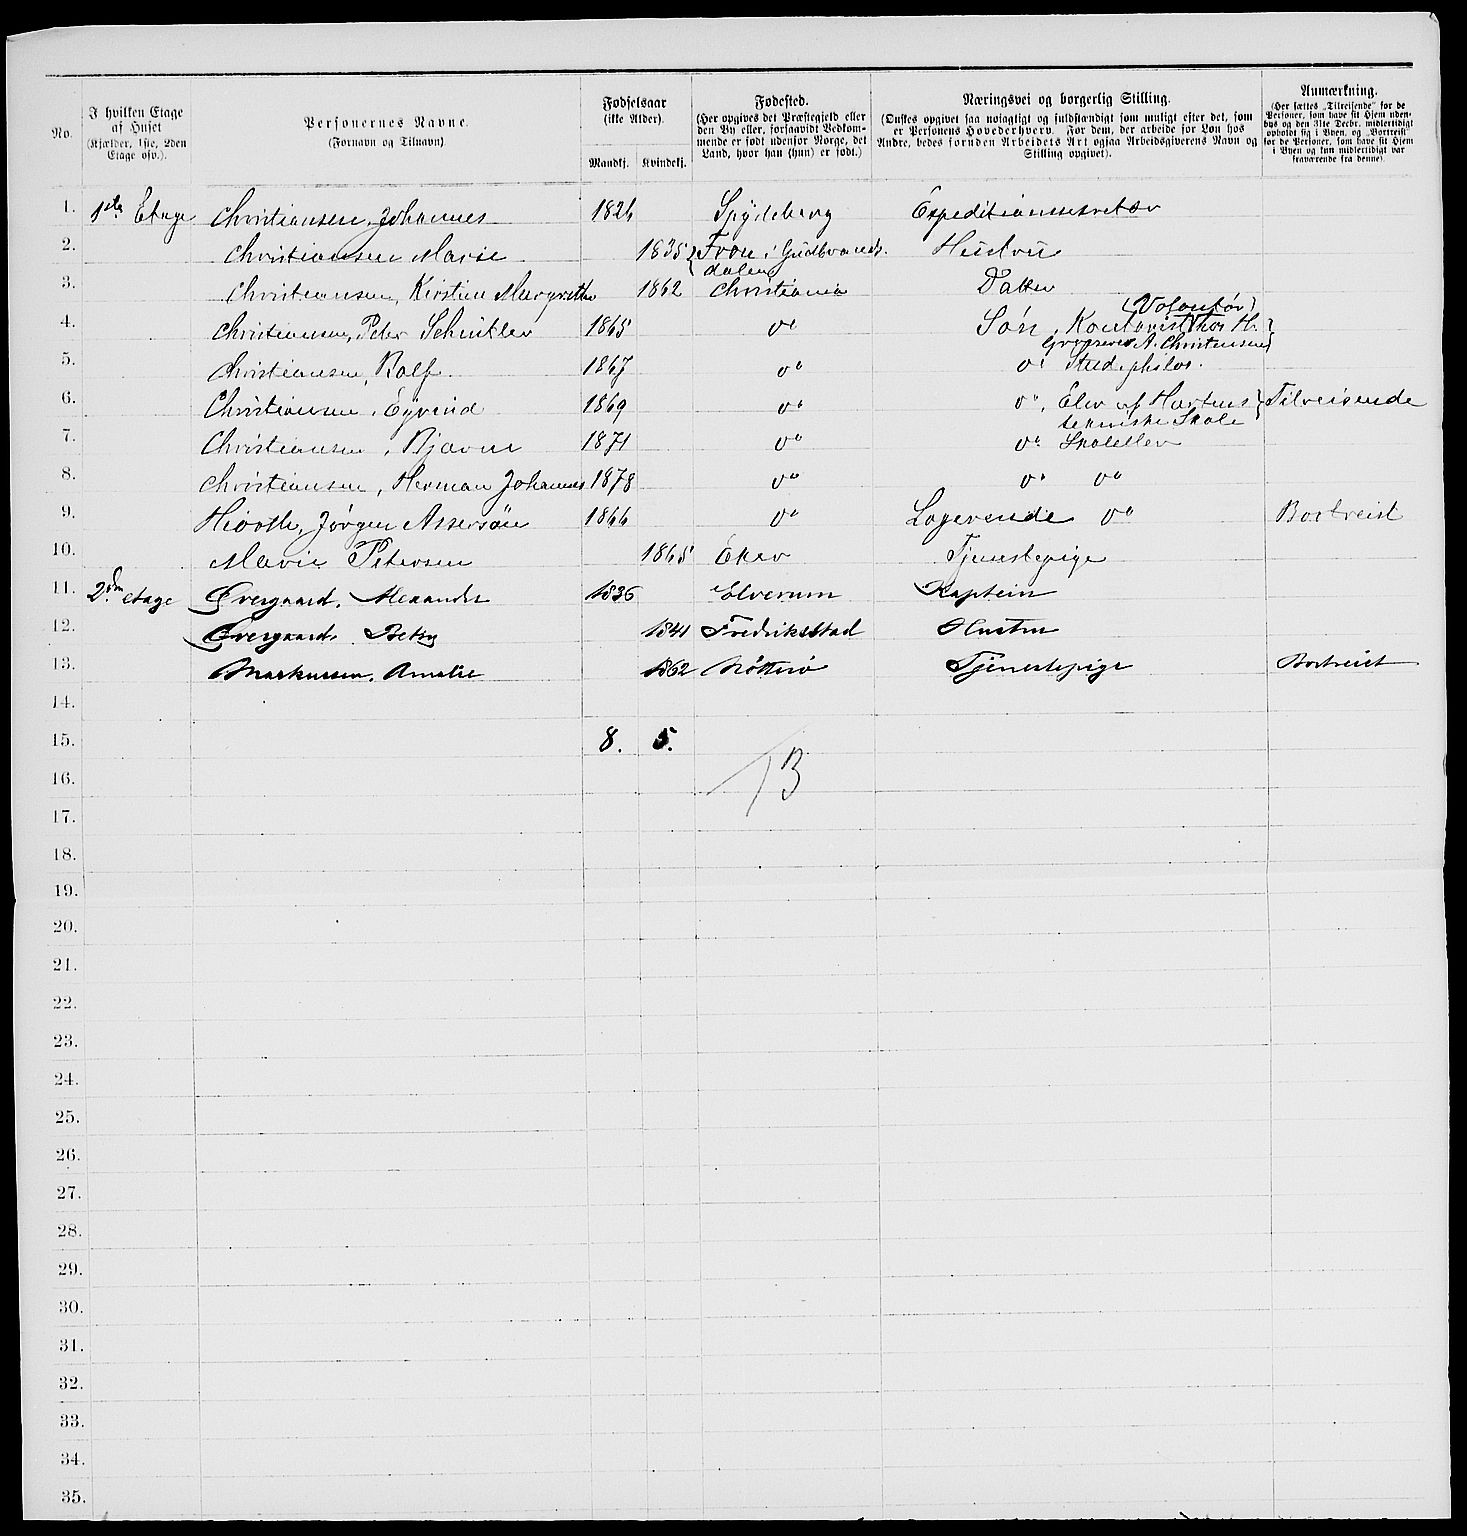 No. | I hvilken Etage af Huset (Kjælder, 1ste, 2den Etage osv.). | Personernes Navne. (Fornavn og Tilnavn) | Fødselsaar (ikke Alder). Mandkj. | Kvindekj. | Fødested. (Her opgives det Præstegjeld eller den By eller, forsaavidt Vedkommende er født udenfor Norge, det Land, hvor han (hun) er født.) | Næringsvei og borgerlig Stilling. (Ønskes opgivet saa nøiagtigt og fuldstændigt som muligt efter det, som er Personens Hovederhverv. For dem, der arbeide for Løn hos Andre, bedes foruden Arbeidets Art ogsaa Arbeidsgiverens Navn og Stilling opgivet). | Anmærkning. (Her sættes „Tilreisende“ for de Personer, som have sit Hjem udenbys og den 31te Decbr. midlertidigt opholdt sig i Byen, og „Bortreist“ for de Personer, som have sit Hjem i Byen og kun midlertidigt var fraværende fra denne).
1. 1ste Etage Christiansen, Johannes 1826 Spydeberg Expeditionssecretær
2. Christiansen Marie 1835 Fron i Gudbrands-
dalen Hustru
3. Christiansen, Kirstine Margrethe 1862 Christiania Datter
4. Christiansen, Peter Schnitler 1865 do Søn, Kontorist (Volontør) hos Hr.
Grosserer A. Christensen
5. Christiansen, Rolf 1867 do do Stud. philos.
6. Christiansen, Eyvind 1869 do do, Elev af Hortens
tekniske Skole Tilreisende
7. Christiansen, Bjarne 1871 do do Skoleelev
8. Christiansen, Herman Johannes 1878 do do do
9. Hiorth, Jørgen Assersøn 1866 do Logerende do Bortreist
10. Marie Petersen 1865 Eker Tjenestepige
11. 2den etage Overgaard, Alexander 1836 Elverum Kaptein
12. Overgaard, Betsy 1841 Fredriksstad Hustru
13. Markussen, Amalie 1862 Nøtterø Tjenestepige Bortreist
14.
15. 8. 5.
16. 13
17.
18.
19.
20.
21.
22.
23.
24.
25.
26.
27.
28.
29.
30.
31.
32.
33.
34.
35.